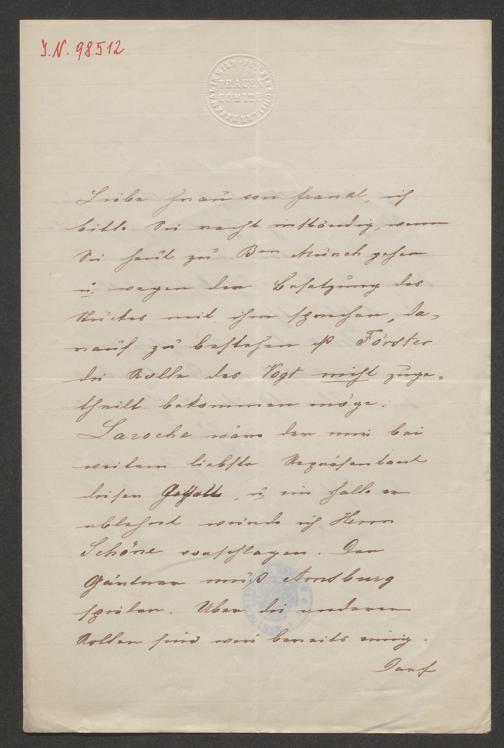 J.N. 98512
FRAUEN
COMITÉ
Liebe Frau von Frankl, ich
bitte Sie recht inständig, wenn
Sie heut zu Bon Münch gehen
u. wegen der Besetzung des
Stückes mit ihm sprechen, da-
rauf zu bestehen ß Förster
die Rolle des Vogt nicht zuge-
theilt bekommen möge.
Laroche wäre der mir bei
weitem liebste Repräsentant
dieser Gestalt, u. im Falle er
ablehnt würde ich Herrn
Schöne vorschlagen. Den
Gärtner muß Arnsburg
spielen. Über die anderen
Rollen sind wir bereits einig.
Darf